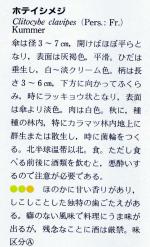 ホテイシメジ
Clitocybe clavipes (Pers.: Fr.)
Kummer
傘は径3～7cm，開けばほぼ平らと
なり，表面は灰褐色，平滑。ひだは
垂生し，白～淡クリーム色。柄は長
さ3～6cm，下方に向かってふくら
み，時にラッキョウ状となり，表面
は傘より淡色。肉は白色。秋に，種
種の林内，特にカラマツ林内地上に
群生または散生し，時に菌輪をつく
る。北半球温帯以北。食。ただし食
べる前後に酒類を飲むと，悪酔いす
るので注意が必要である。
●●● ほのかに甘い香りがあり，
しこしことした独特の歯ごたえがあ
る。癖のない風味で料理にうま味が
出るが，残念なことに酒は厳禁。味
区分Ⓐ